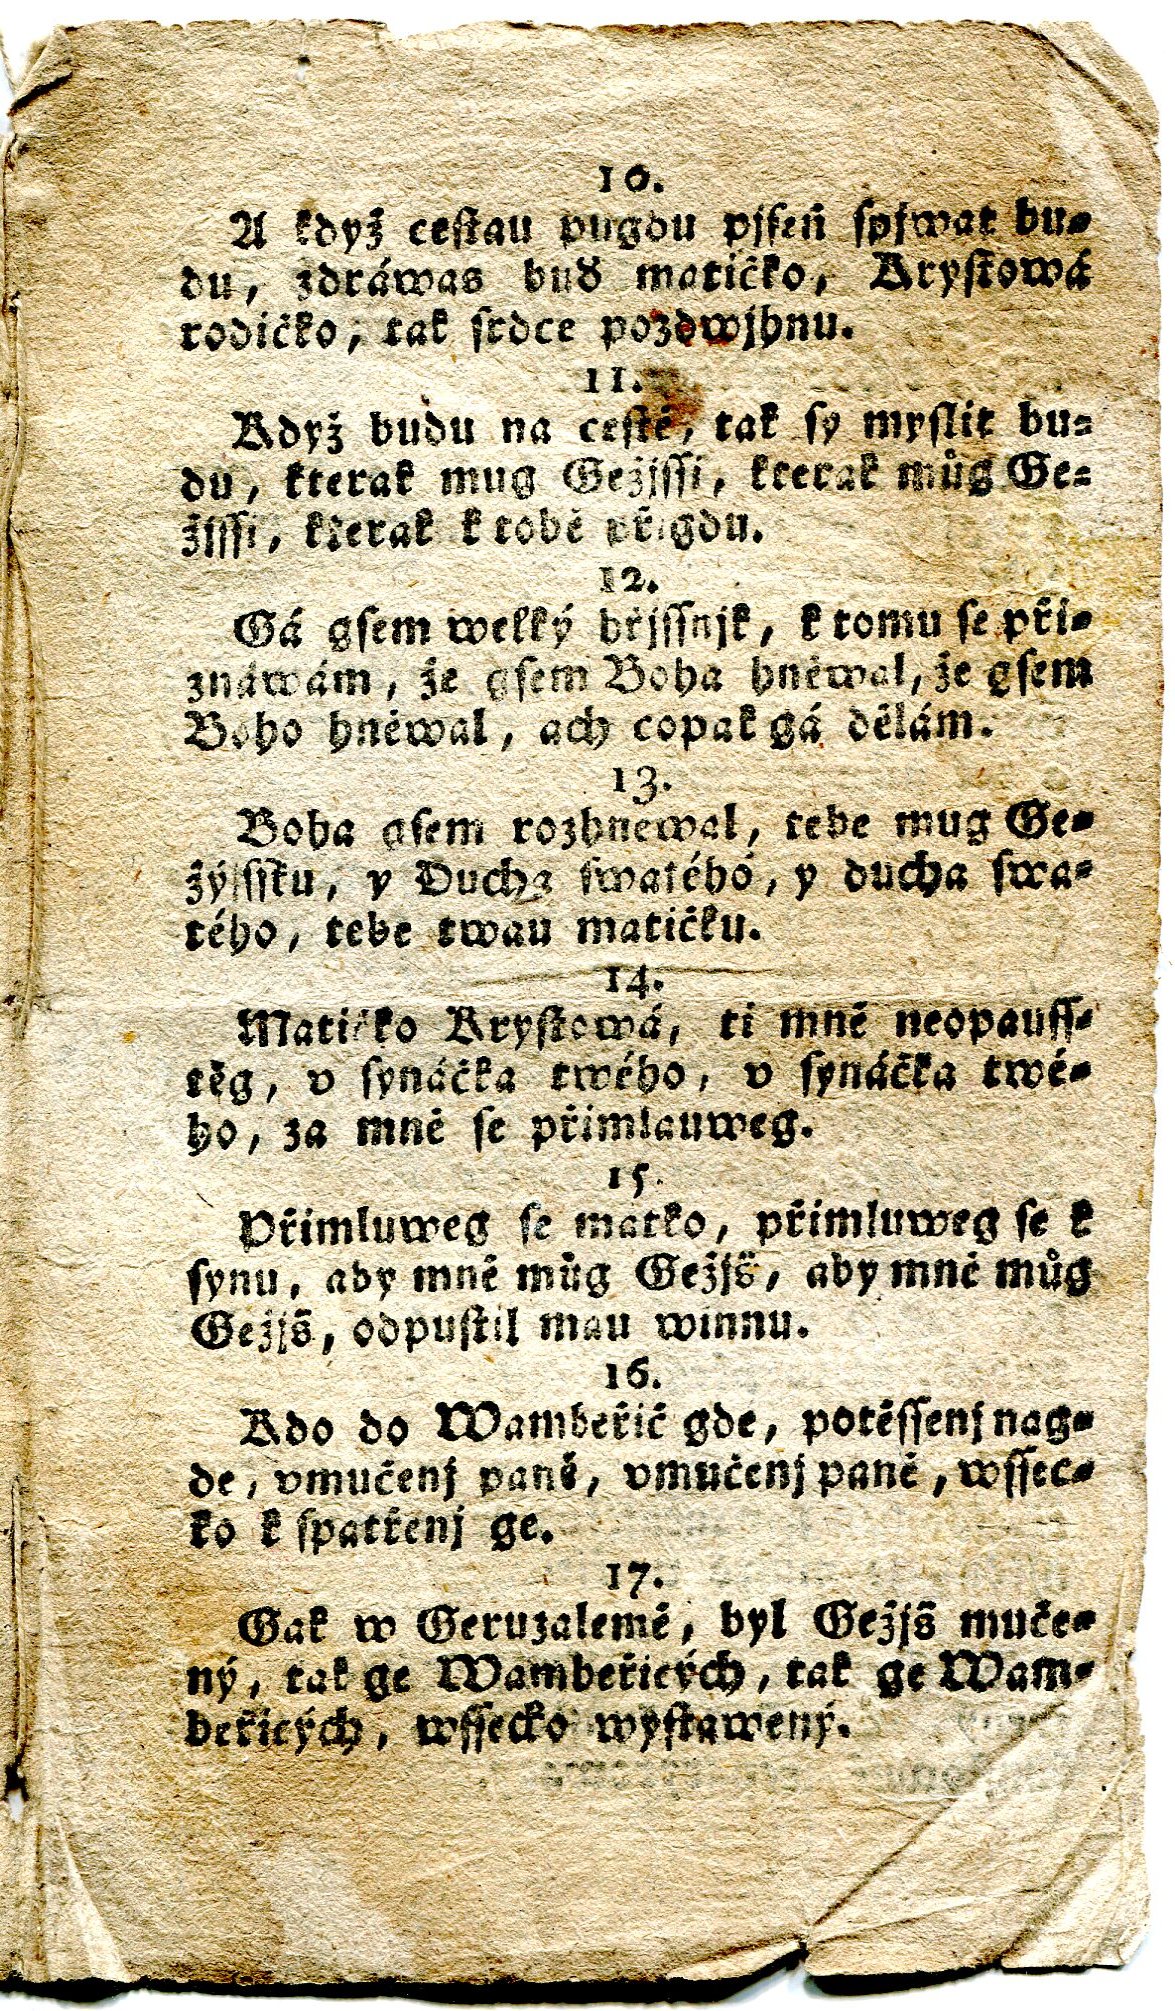 10.
A když cestau pugdu pjseň spjwat bu-
du, zdráwas buď matičko, Krystowá
rodičko, tak srdce pozdwjhnu.
11.
Když budu na cestě, tak sy myslit bu-
du, kterak mug Gežjssi, kterak můg Ge-
žjssi, kterak k tobě přigdu.
12.
Gá gsem welký hřjssnjk, k tomu se při-
znáwám, že gsem Boha hněwal, že gsem
Boho hněwal, ach copak gá dělám.
13.
Boha gsem rozhněwal, tebe mug Ge-
žýssku, y Ducha swatého, y ducha swa-
tého, tebe twau matičku.
14.
Matičko Krystowá, ti mně neopauss-
těg, v synáčka twého, v synáčka twé-
ho, za mně se přimlauweg.
15.
Přimluweg se matko, přimluweg se k
synu, aby mně můg Gežjš, aby mně můg
Gežjš, odpustil mau winnu.
16.
Kdo do Wambeřič gde, potěssenj nag-
de, vmučenj paně, vmučenj paně, wssec-
ko k spatřenj ge.
17.
Gak w Geruzalemě, byl Gežjš muče-
ný, tak ge Wambeřicých, tak ge Wam-
beřicých, wssecko wystawený.